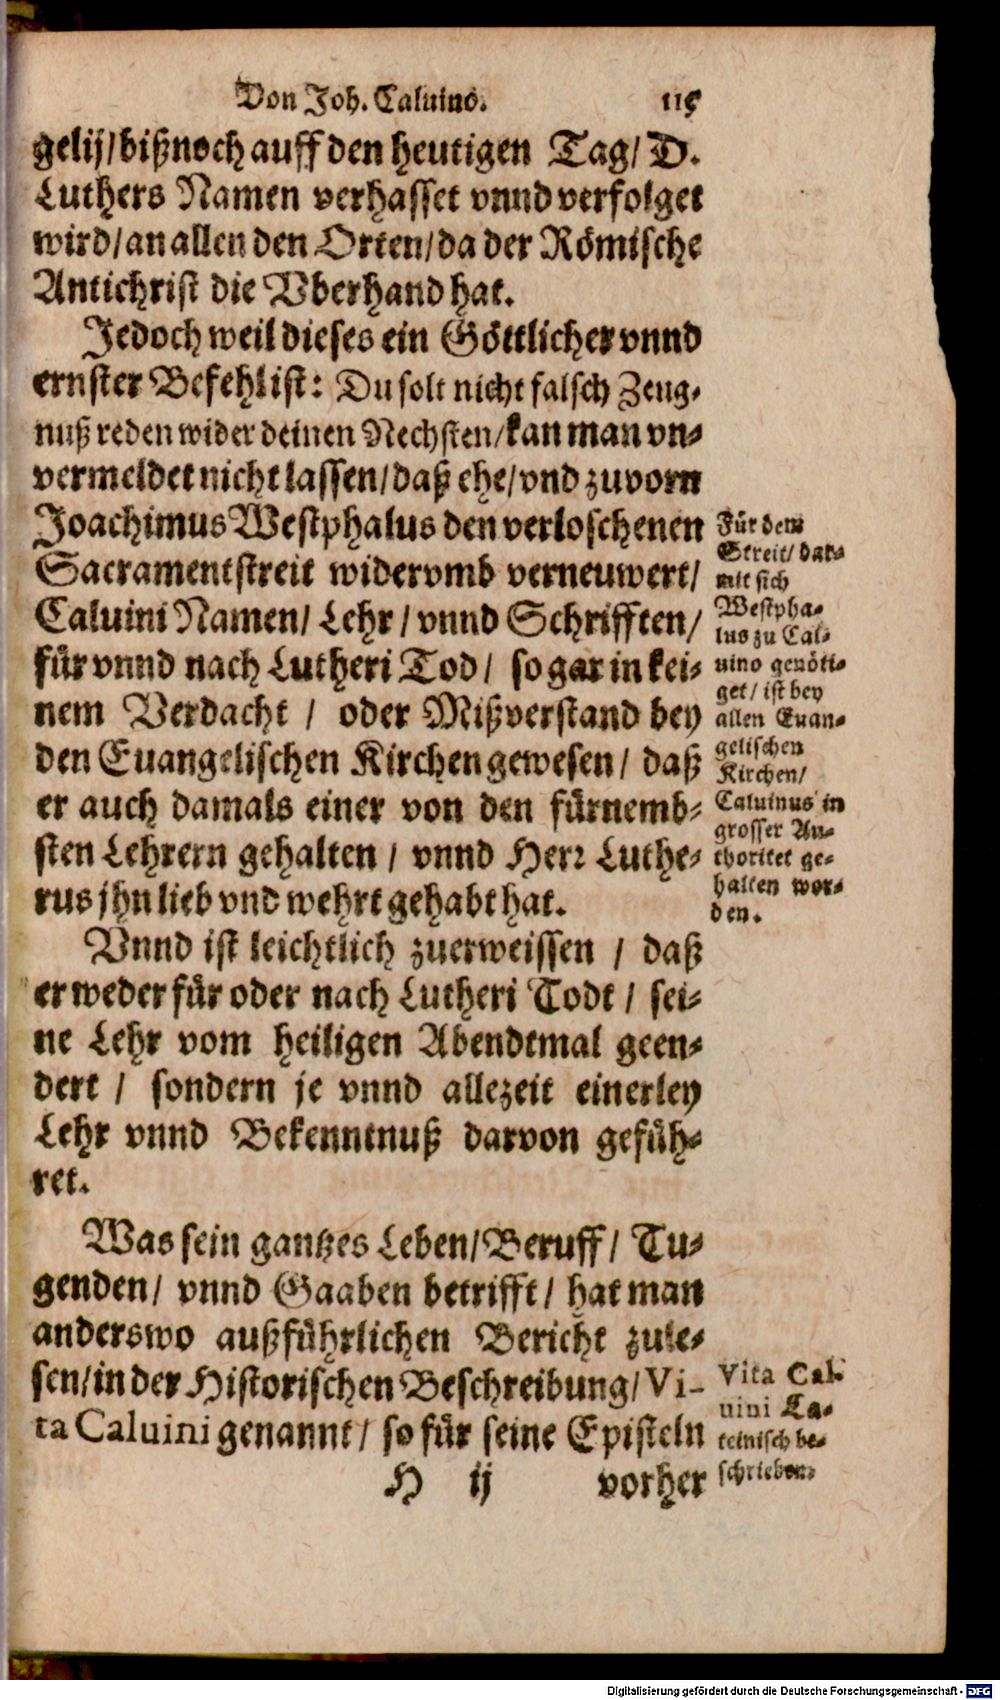 Von Joh. Caluino. 115
gelij/bißnoch auff den heutigen Tag/ D.
Luthers Namen verhasset vnnd verfolget
wird/an allen den Orten/da der Römische
Antichrist die Vberhand hat.
Jedoch weil dieses ein Göttlicher vnnd
ernster Befehl ist: Du solt nicht falsch Zeug-
nuß reden wider deinen Nechsten/kan man vn-
vermeldet nicht lassen/daß ehe/vnd zuvorn
Joachimus Westphalus den verloschenen
Sacramentstreit widervmb verneuwert/
Caluini Namen/ Lehr / vnnd Schrifften/
für vnnd nach Lutheri Tod / so gar in kei-
nem Verdacht / oder Mißverstand bey
den Euangelischen Kirchen gewesen / daß
er auch damals einer von den fürnemb-
sten Lehrern gehalten / vnnd Herr Luthe-
rus jhn lieb vnd wehrt gehabt hat.
Für dem
Streit/ dar-
mit sich
Westpha-
lus zu Cal-
uino genöti-
get / ist bey
allen Euan-
gelischen
Kirchen/
Caluinus in
grosser Au-
thoritet ge-
halten wor-
den.
Vnnd ist leichtlich zuerweissen / daß
er weder für oder nach Lutheri Todt / sei-
ne Lehr vom heiligen Abendtmal geen-
dert / sondern je vnnd allezeit einerley
Lehr vnnd Bekenntnuß darvon gefüh-
ret.
Was sein gantzes Leben/Beruff/ Tu-
genden/ vnnd Gaaben betrifft/ hat man
anderswo außführlichen Bericht zule-
sen/in der Historischen Beschreibung/ Vi-
ta Caluini genannt/ so für seine Episteln
Vita Cal-
uini La-
teinisch be-
schrieben.
H ij vorher
Digitalisierung gefördert durch die Deutsche Forschungsgemeinschaft - DFG